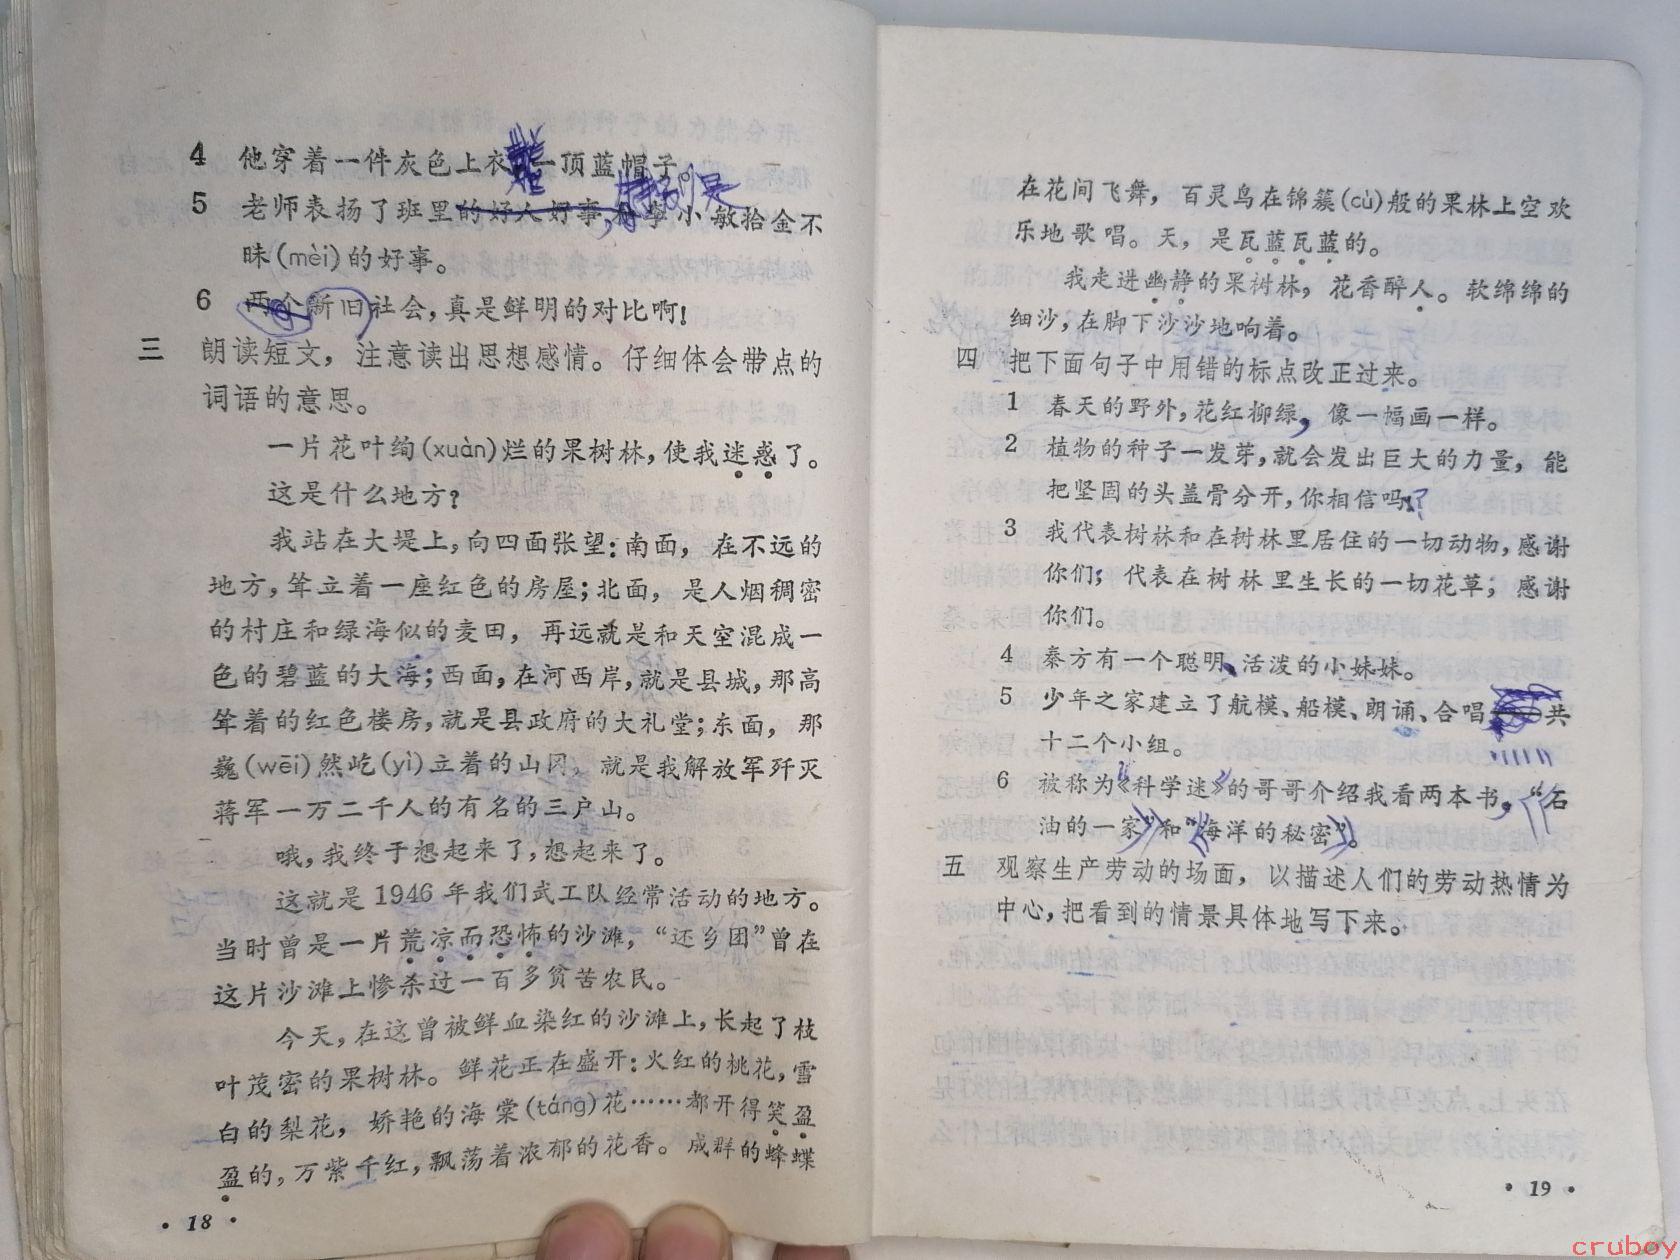 4 他穿着一件灰色上衣戴一顶蓝帽子。
特别是
5 老师表扬了班里的好人好事,和李小敏拾金不
昧(mèi)的好事。
6 两个新旧社会,真是鲜明的对比啊!
三 朗读短文，注意读出思想感情。仔细体会带点的
词语的意思。
一片花叶绚(xuàn)烂的果树林,使我迷惑了。
这是什么地方?
我站在大堤上,向四面张望:南面，在不远的
地方,耸立着一座红色的房屋;北面，是人烟稠密
的村庄和绿海似的麦田，再远就是和天空混成一
色的碧蓝的大海;西面,在河西岸,就是县城,那高
耸着的红色楼房,就是县政府的大礼堂;东面，那
巍(wēi)然屹(yì)立着的山冈，就是我解放军歼灭
蒋军一万二千人的有名的三户山。
哦,我终于想起来了,想起来了。
这就是1946年我们武工队经常活动的地方。
当时曾是一片荒凉而恐怖的沙滩，“还乡团”曾在
这片沙滩上惨杀过一百多贫苦农民。
今天,在这曾被鲜血染红的沙滩上,长起了枝
叶茂密的果树林。鲜花正在盛开:火红的桃花,雪
白的梨花，娇艳的海棠(táng)花……都开得笑盈
盈的,万紫千红,飘荡着浓郁的花香。成群的蜂蝶
·18·
在花间飞舞，百灵鸟在锦簇(cù)般的果林上空欢
乐地歌唱。天，是瓦蓝瓦蓝的。
我走进幽静的果树林，花香醉人。软绵绵的
细沙,在脚下沙沙地响着。
四 把下面句子中用错的标点改正过来。
1 春天的野外,花红柳绿，像一幅画一样。
2 植物的种子一发芽,就会发出巨大的力量，能
把坚固的头盖骨分开,你相信吗?
3 我代表树林和在树林里居住的一切动物,感谢
你们;代表在树林里生长的一切花草;感谢
你们。
4 秦方有一个聪明、活泼的小妹妹。
5 少年之家建立了航模、船模、朗诵、合唱共
十二个小组。
6 被称为《科学迷》的哥哥介绍我看两本书，“石
油的一家”和“海洋的秘密”。
五 观察生产劳动的场面，以描述人们的劳动热情为
中心,把看到的情景具体地写下来。
·19·
cruboy